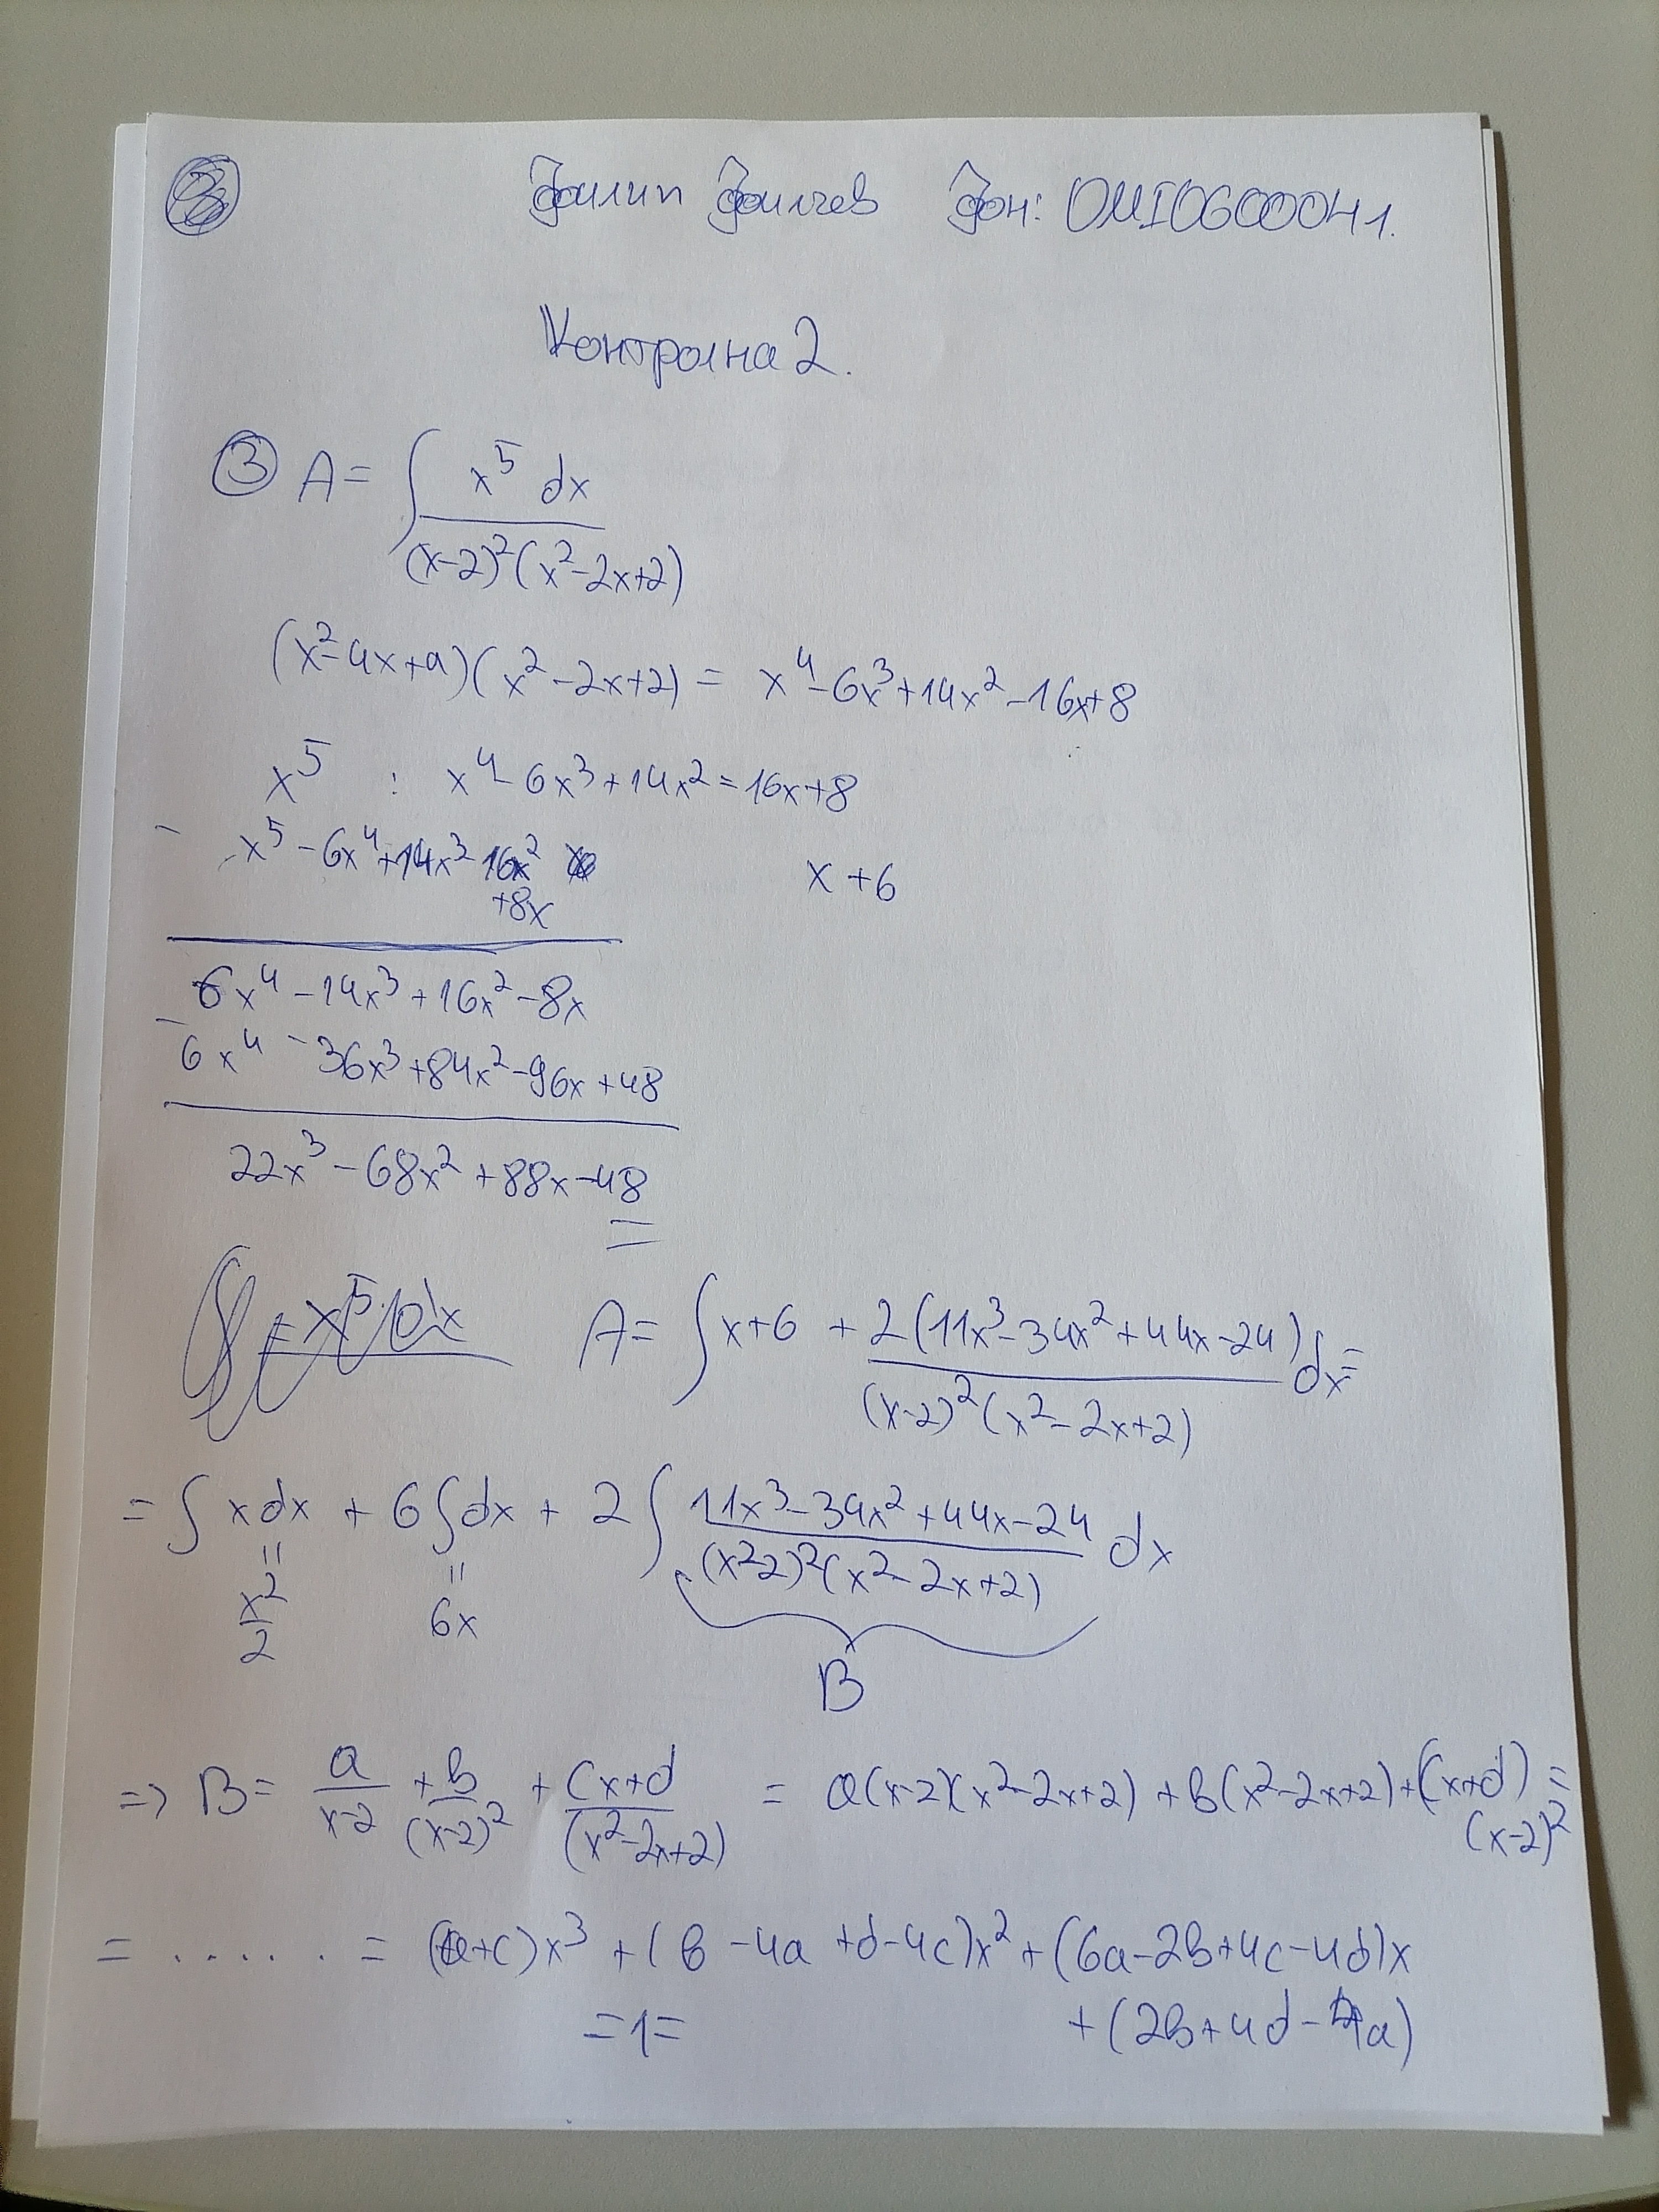 Филип Филчев Фон: 0MI0600041.
Контролна 2.
③ A = ∫ x⁵ dx / (x-2)²(x²-2x+2)
(x²-4x+4)(x²-2x+2) = x⁴-6x³+14x²-16x+8
x⁵ : x⁴-6x³+14x²-16x+8
- x⁵-6x⁴+14x³-16x² x+6
+8x
6x⁴-14x³+16x²-8x
- 6x⁴-36x³+84x²-96x+48
22x³-68x²+88x-48
A = ∫ x+6 + 2(11x³-34x²+44x-24) / (x-2)²(x²-2x+2) dx =
= ∫ x dx + 6∫dx + 2∫ 11x³-34x²+44x-24 / (x-2)²(x²-2x+2) dx
= x²/2 = 6x
B
=> B = a/(x-2) + b/(x-2)² + (cx+d)/(x²-2x+2) = a(x-2)(x²-2x+2) + b(x²-2x+2) + (cx+d)(x-2)² =
= ...... = (a+c)x³ + (b-4a+d-4c)x² + (6a-2b+4c-4d)x
=1= + (2b+4d-4a)